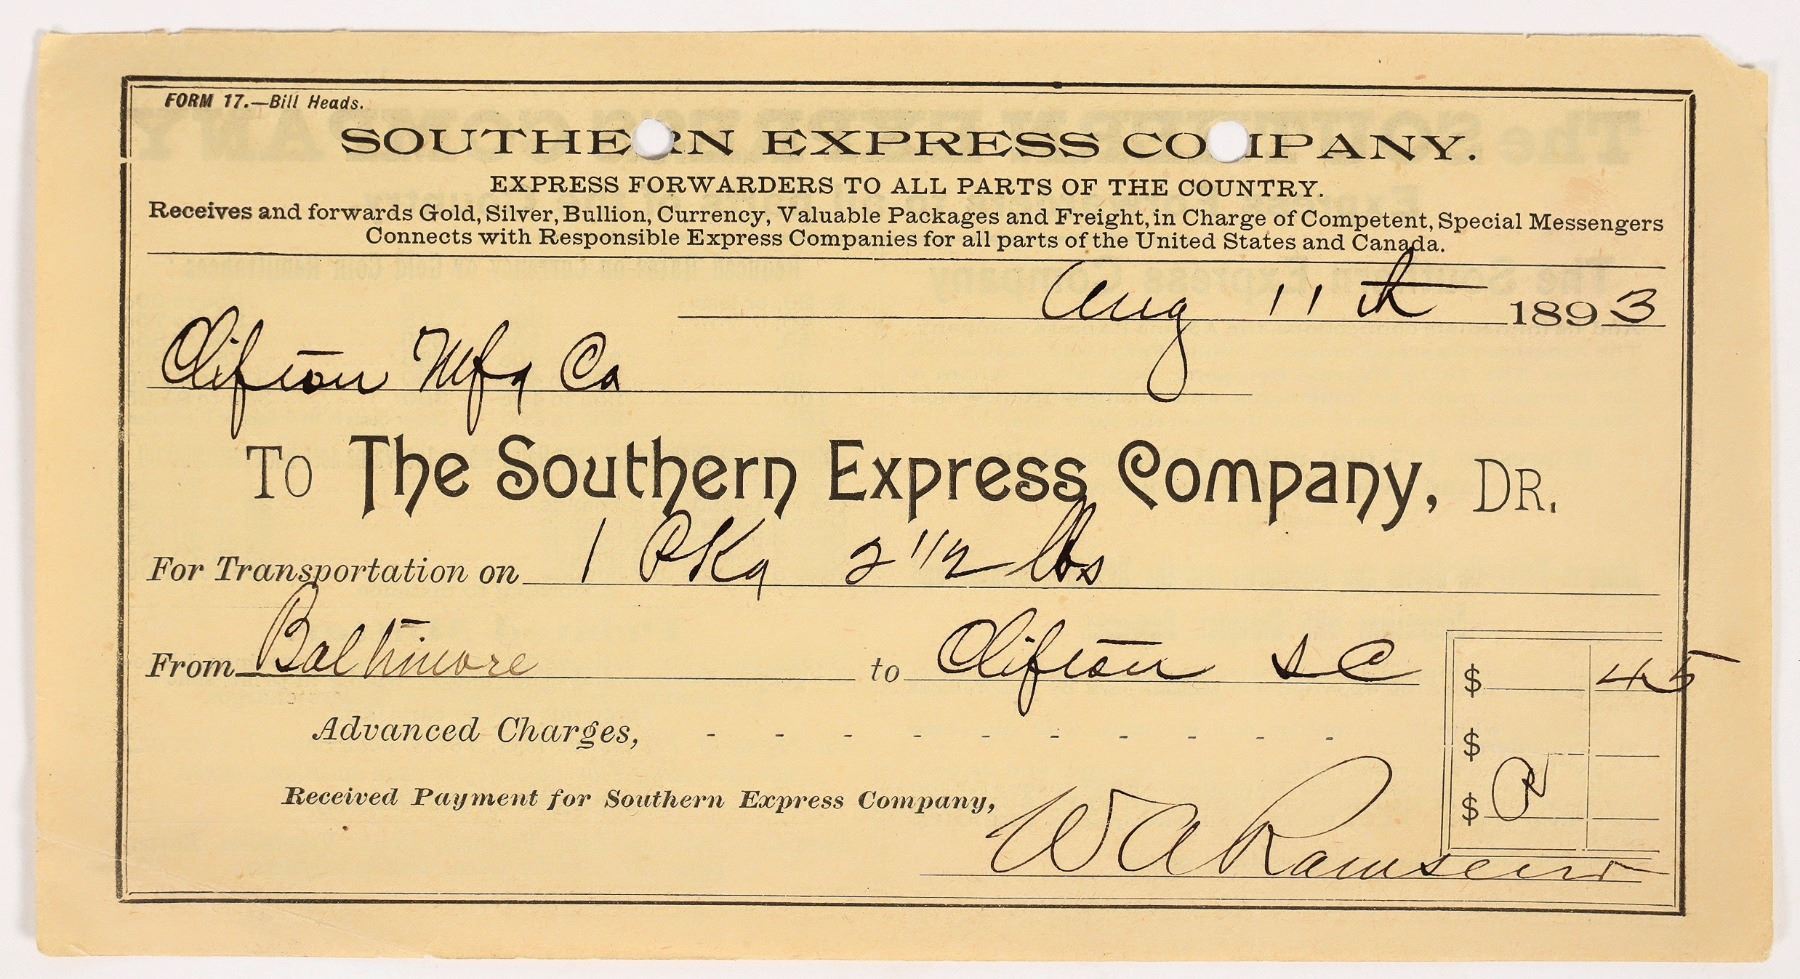 FORM 17.—Bill Heads.
SOUTHERN EXPRESS COMPANY.
EXPRESS FORWARDERS TO ALL PARTS OF THE COUNTRY.
Receives and forwards Gold, Silver, Bullion, Currency, Valuable Packages and Freight, in Charge of Competent, Special Messengers
Connects with Responsible Express Companies for all parts of the United States and Canada.
Aug 11th 1893
Clifton Mfg Co
TO The Southern Express Company, DR.
For Transportation on 1 Pkg 2 1/2 lbs
From Baltimore to Clifton S C $ 45
Advanced Charges, - - - - - - - - - - $
Received Payment for Southern Express Company, $
W A